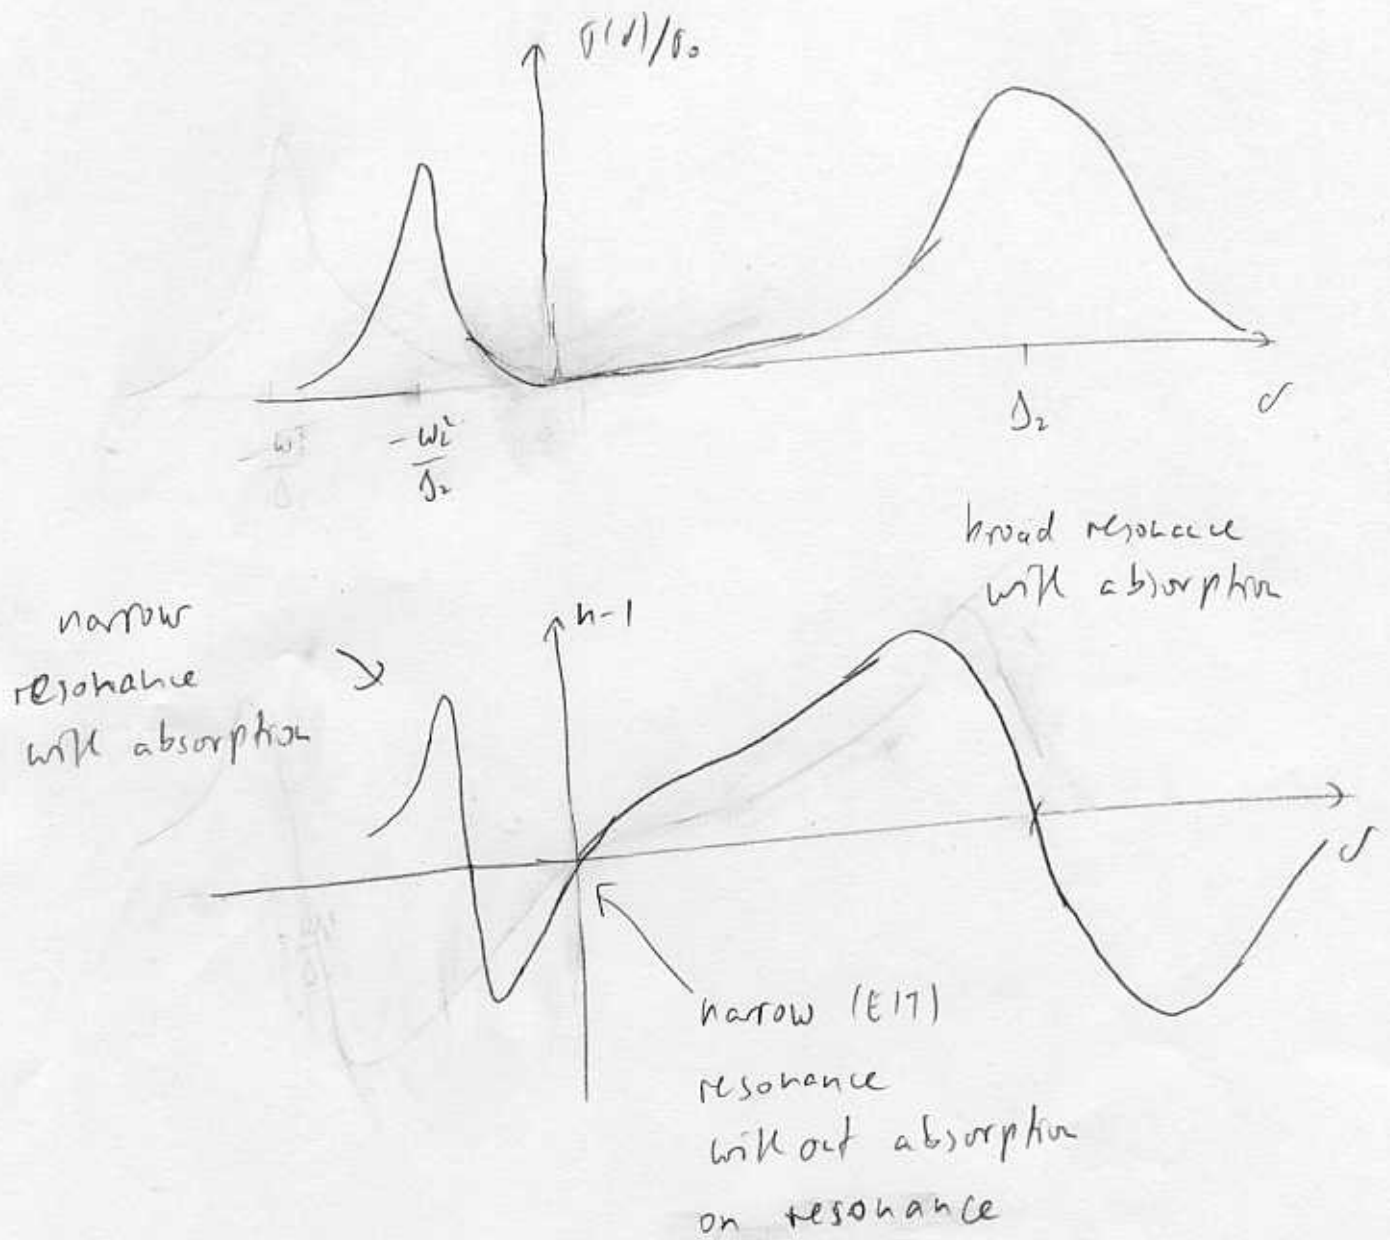 σ(δ)/σ₀
-ω₂²/Δ₂
Δ₂
δ
broad resonance
with absorption
narrow
resonance
with absorption
n-1
δ
narrow (EIT)
resonance
without absorption
on resonance